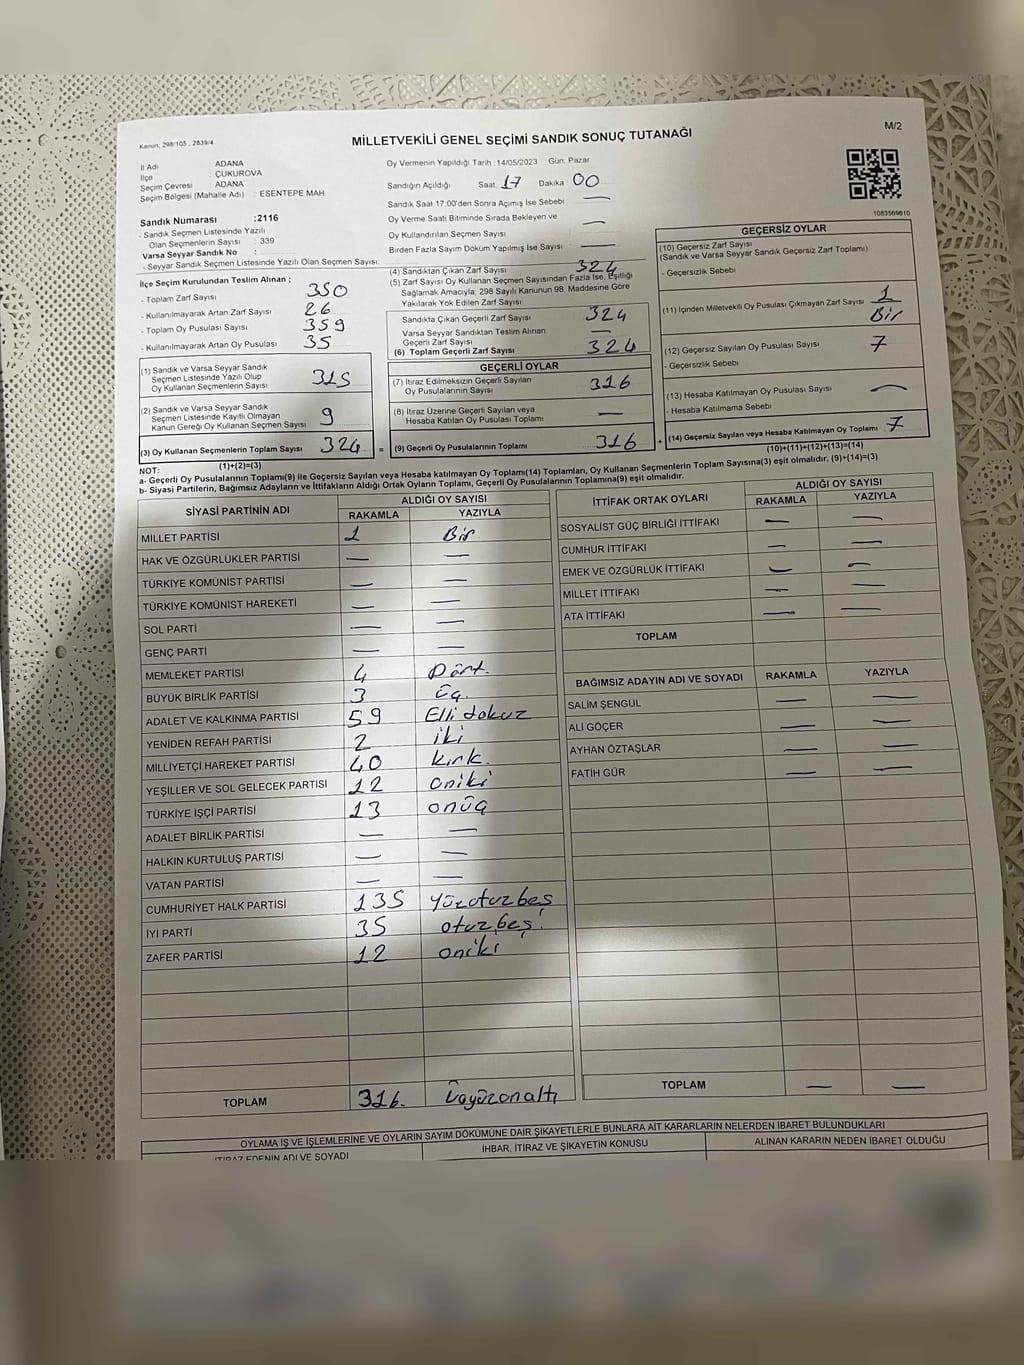 Kanun. 298/105 , 2839/4
MİLLETVEKİLİ GENEL SEÇİMİ SANDIK SONUÇ TUTANAĞI
M/2
İl Adı : ADANA
İlçe : ÇUKUROVA
Seçim Çevresi : ADANA
Seçim Bölgesi (Mahalle Adı) : ESENTEPE MAH
Sandık Numarası :2116
- Sandık Seçmen Listesinde Yazılı
Olan Seçmenlerin Sayısı : 339
Varsa Seyyar Sandık No :
- Seyyar Sandık Seçmen Listesinde Yazılı Olan Seçmen Sayısı:
Oy Vermenin Yapıldığı Tarih :14/05/2023 Gün: Pazar
Sandığın Açıldığı Saat 17 Dakika 00
Sandık Saat 17:00'den Sonra Açımış İse Sebebi : —
Oy Verme Saati Bitiminde Sırada Bekleyen ve
Oy Kullandırılan Seçmen Sayısı —
Birden Fazla Sayım Döküm Yapılmış İse Sayısı —
1083569610
İlçe Seçim Kurulundan Teslim Alınan ;
- Toplam Zarf Sayısı 350
- Kullanılmayarak Artan Zarf Sayısı 26
- Toplam Oy Pusulası Sayısı 359
- Kullanılmayarak Artan Oy Pusulası 35
(1) Sandık ve Varsa Seyyar Sandık
Seçmen Listesinde Yazılı Olup
Oy Kullanan Seçmenlerin Sayısı 315
(2) Sandık ve Varsa Seyyar Sandık
Seçmen Listesinde Kayıtlı Olmayan
Kanun Gereği Oy Kullanan Seçmen Sayısı 9
(3) Oy Kullanan Seçmenlerin Toplam Sayısı 324 =
(1)+(2)=(3)
(4) Sandıktan Çıkan Zarf Sayısı 324
(5) Zarf Sayısı Oy Kullanan Seçmen Sayısından Fazla İse, Eşitliği
Sağlamak Amacıyla, 298 Sayılı Kanunun 98. Maddesine Göre
Yakılarak Yok Edilen Zarf Sayısı
Sandıkta Çıkan Geçerli Zarf Sayısı 324
Varsa Seyyar Sandıktan Teslim Alınan
Geçerli Zarf Sayısı —
(6) Toplam Geçerli Zarf Sayısı 324
GEÇERLİ OYLAR
(7) İtiraz Edilmeksizin Geçerli Sayılan
Oy Pusulalarının Sayısı 316
(8) İtiraz Üzerine Geçerli Sayılan veya
Hesaba Katılan Oy Pusulası Toplamı —
(9) Geçerli Oy Pusulalarının Toplamı 316 +
GEÇERSİZ OYLAR
(10) Geçersiz Zarf Sayısı
(Sandık ve Varsa Seyyar Sandık Geçersiz Zarf Toplamı)
- Geçersizlik Sebebi
(11) İçinden Milletvekili Oy Pusulası Çıkmayan Zarf Sayısı 1 Bir
(12) Geçersiz Sayılan Oy Pusulası Sayısı 7
- Geçersizlik Sebebi
(13) Hesaba Katılmayan Oy Pusulası Sayısı —
- Hesaba Katılmama Sebebi
(14) Geçersiz Sayılan veya Hesaba Katılmayan Oy Toplamı 7
(10)+(11)+(12)+(13)=(14)
NOT:
a- Geçerli Oy Pusulalarının Toplamı(9) ile Geçersiz Sayılan veya Hesaba katılmayan Oy Toplamı(14) Toplamları, Oy Kullanan Seçmenlerin Toplam Sayısına(3) eşit olmalıdır. (9)+(14)=(3)
b- Siyasi Partilerin, Bağımsız Adayların ve İttifakların Aldığı Ortak Oyların Toplamı, Geçerli Oy Pusulalarının Toplamına(9) eşit olmalıdır.
SİYASİ PARTİNİN ADI ALDIĞI OY SAYISI
RAKAMLA YAZIYLA
MİLLET PARTİSİ 1 Bir
HAK VE ÖZGÜRLÜKLER PARTİSİ — —
TÜRKİYE KOMÜNİST PARTİSİ — —
TÜRKİYE KOMÜNİST HAREKETİ — —
SOL PARTİ — —
GENÇ PARTİ — —
MEMLEKET PARTİSİ 4 Dört.
BÜYÜK BİRLİK PARTİSİ 3 Üç.
ADALET VE KALKINMA PARTİSİ 59 Elli dokuz
YENİDEN REFAH PARTİSİ 2 iki
MİLLİYETÇİ HAREKET PARTİSİ 40 kırk.
YEŞİLLER VE SOL GELECEK PARTİSİ 12 oniki
TÜRKİYE İŞÇİ PARTİSİ 13 onüç
ADALET BİRLİK PARTİSİ — —
HALKIN KURTULUŞ PARTİSİ — —
VATAN PARTİSİ — —
CUMHURİYET HALK PARTİSİ 135 yüzotuzbeş
İYİ PARTİ 35 otuzbeş
ZAFER PARTİSİ 12 oniki
TOPLAM 316. Üçyüzonaltı
İTTİFAK ORTAK OYLARI ALDIĞI OY SAYISI
RAKAMLA YAZIYLA
SOSYALİST GÜÇ BİRLİĞİ İTTİFAKI — —
CUMHUR İTTİFAKI — —
EMEK VE ÖZGÜRLÜK İTTİFAKI — —
MİLLET İTTİFAKI — —
ATA İTTİFAKI — —
TOPLAM
BAĞIMSIZ ADAYIN ADI VE SOYADI RAKAMLA YAZIYLA
SALİM ŞENGÜL — —
ALİ GÖÇER — —
AYHAN ÖZTAŞLAR — —
FATİH GÜR — —
TOPLAM — —
OYLAMA İŞ VE İŞLEMLERİNE VE OYLARIN SAYIM DÖKÜMÜNE DAİR ŞİKAYETLERLE BUNLARA AİT KARARLARIN NELERDEN İBARET BULUNDUKLARI
İTİRAZ EDENİN ADI VE SOYADI İHBAR, İTİRAZ VE ŞİKAYETİN KONUSU ALINAN KARARIN NEDEN İBARET OLDUĞU